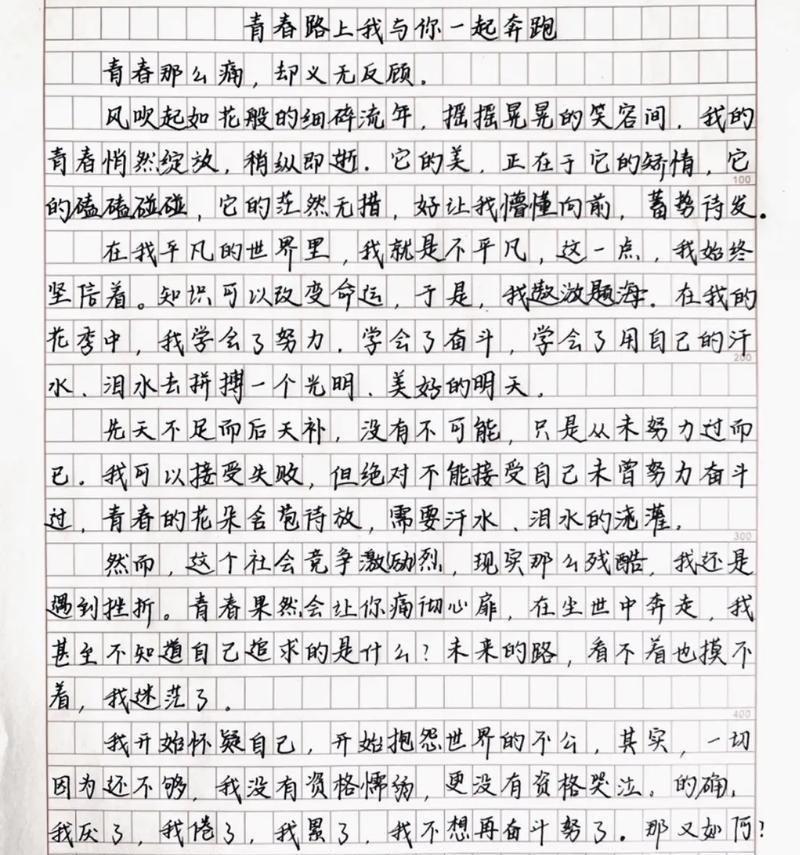 青春路上我与你一起奔跑
青春那么痛，却义无反顾。
风吹起如花般的细碎流年，摇摇晃晃的笑容间，我的
青春悄然绽放，稍纵即逝.它的美，正在于它的矫情，它
100
的磕磕碰碰，它的茫然无措，好让我懵懂向前，蓄势待发。
在我平凡的世界里，我就是不平凡，这一点，我始终
坚信着。知识可以改变命运，于是，我遨游题海.在我的
花季中，我学会了努力.学会了奋斗，学会了用自己的汗
200
水、泪水去拼搏一个光明、美好的明天.
先天不足而后天补，没有不可能，只是从未努力过而
已.我可以接受失败，但绝对不能接受自己未曾努力奋斗
过，青春的花朵含苞待放，需要汗水、泪水的浇灌.
300
然而，这个社会竞争激励烈，现实那么残酷，我还是
遇到挫折。青春果然会让你痛彻心扉，在尘世中奔走，我
甚至不知道自己追求的是什么？未来的路，看不着也摸不
着，我迷茫了。
400
我开始怀疑自己，开始抱怨世界的不公，其实，一切
因为还不够，我没有资格懦弱，更没有资格哭泣.的确，
我厌了，我倦了，我累了，我不想再奋斗努了。那又如何？